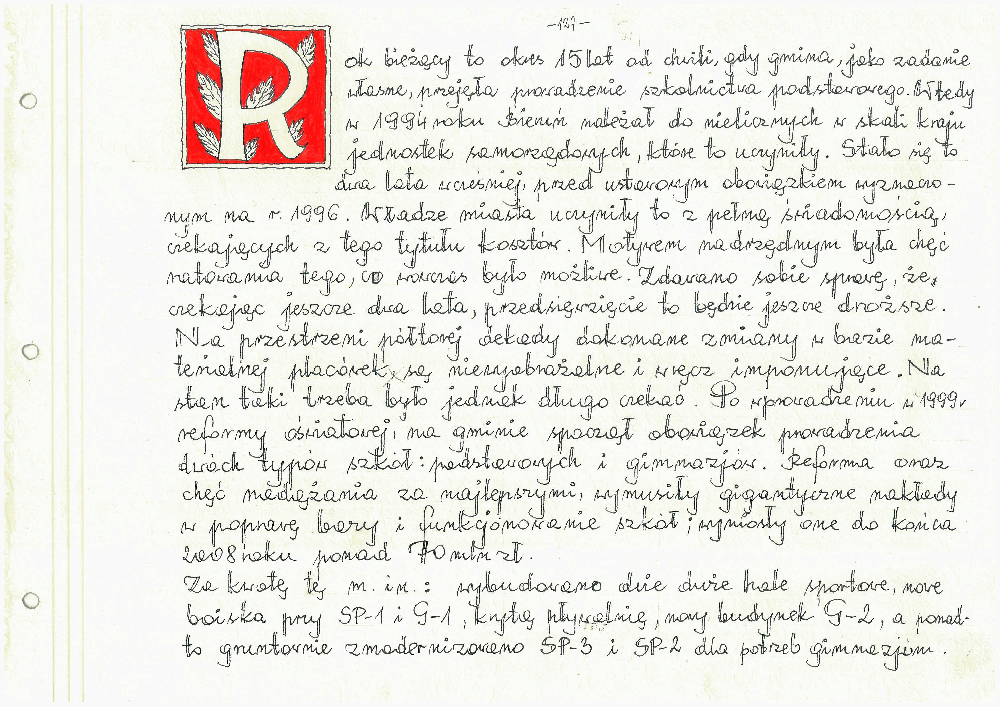 -121-
Rok bieżący to okres 15 lat od chwili, gdy gmina, jako zadanie
własne, przejęła prowadzenie szkolnictwa podstawowego. Wtedy
w 1994 roku Bieruń należał do nielicznych w skali kraju
jednostek samorządowych, które to uczyniły. Stało się to
dwa lata wcześniej, przed ustawowym obowiązkiem wyznaczo-
nym na r. 1996. Władze miasta uczyniły to z pełną świadomością,
czekających z tego tytułu kosztów. Motywem nadrzędnym była chęć
ratowania tego, co wówczas było możliwe. Zdawano sobie sprawę, że,
czekając jeszcze dwa lata, przedsięwzięcie to będzie jeszcze droższe.
Na przestrzeni półtorej dekady dokonane zmiany w bazie ma-
terialnej placówek, są niewyobrażalne i wręcz imponujące. Na
stan taki trzeba było jednak długo czekać. Po wprowadzeniu w 1999r
reformy oświatowej, na gminie spoczął obowiązek prowadzenia
dwóch typów szkół: podstawowych i gimnazjów. Reforma oraz
chęć nadążania za najlepszymi, wymusiły gigantyczne nakłady
w poprawę bazy i funkcjonowanie szkół; wyniosły one do końca
2008 roku ponad 70 mln zł.
Za kwotę tę m. in.: wybudowano dwie duże hale sportowe, nowe
boiska przy SP-1 i G-1, krytą pływalnię, nowy budynek G-2, a ponad-
to gruntownie zmodernizowano SP-3 i SP-2 dla potrzeb gimnazjum.